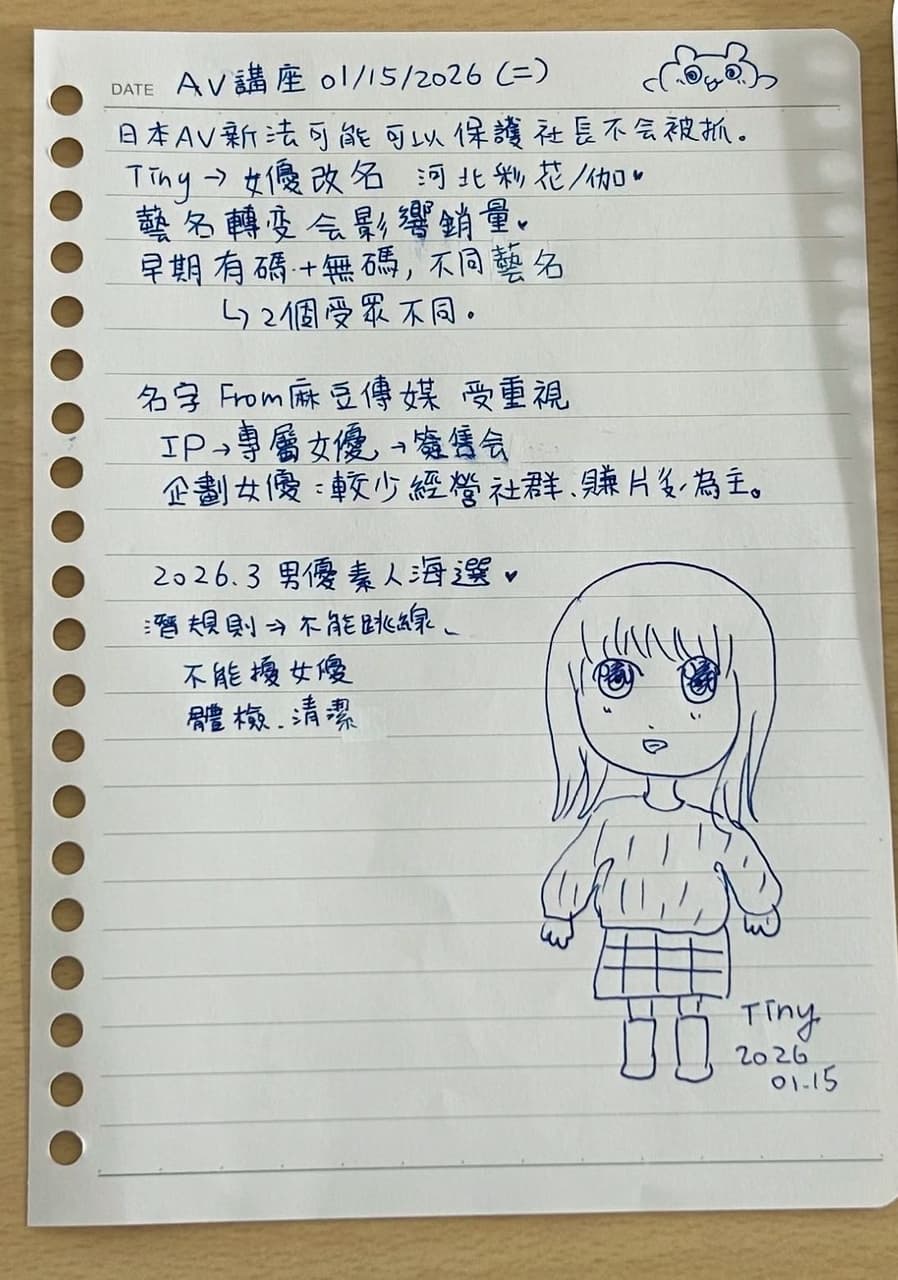 DATE AV講座 01/15/2026 (二)
日本AV新法可能可以保護社長不会被抓。
Tiny → 女優改名 河北彩花/伽♥
藝名轉变会影響銷量♥
早期有碼+無碼, 不同藝名
↳ 2個受眾不同。
名字 From麻豆傳媒 受重視
IP→專屬女優→簽售会
企劃女優:較少經營社群、賺片為主。
2026.3 男優素人海選♥
潛規則⇒不能跳線、
不能擾女優
體檢、清潔
Tiny
2026
01.15